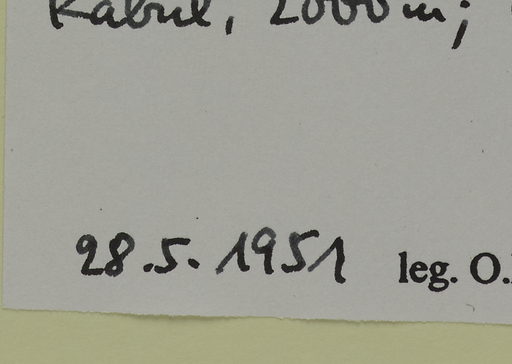 Kabul, 2000 m;
28.5.1951 leg. O.